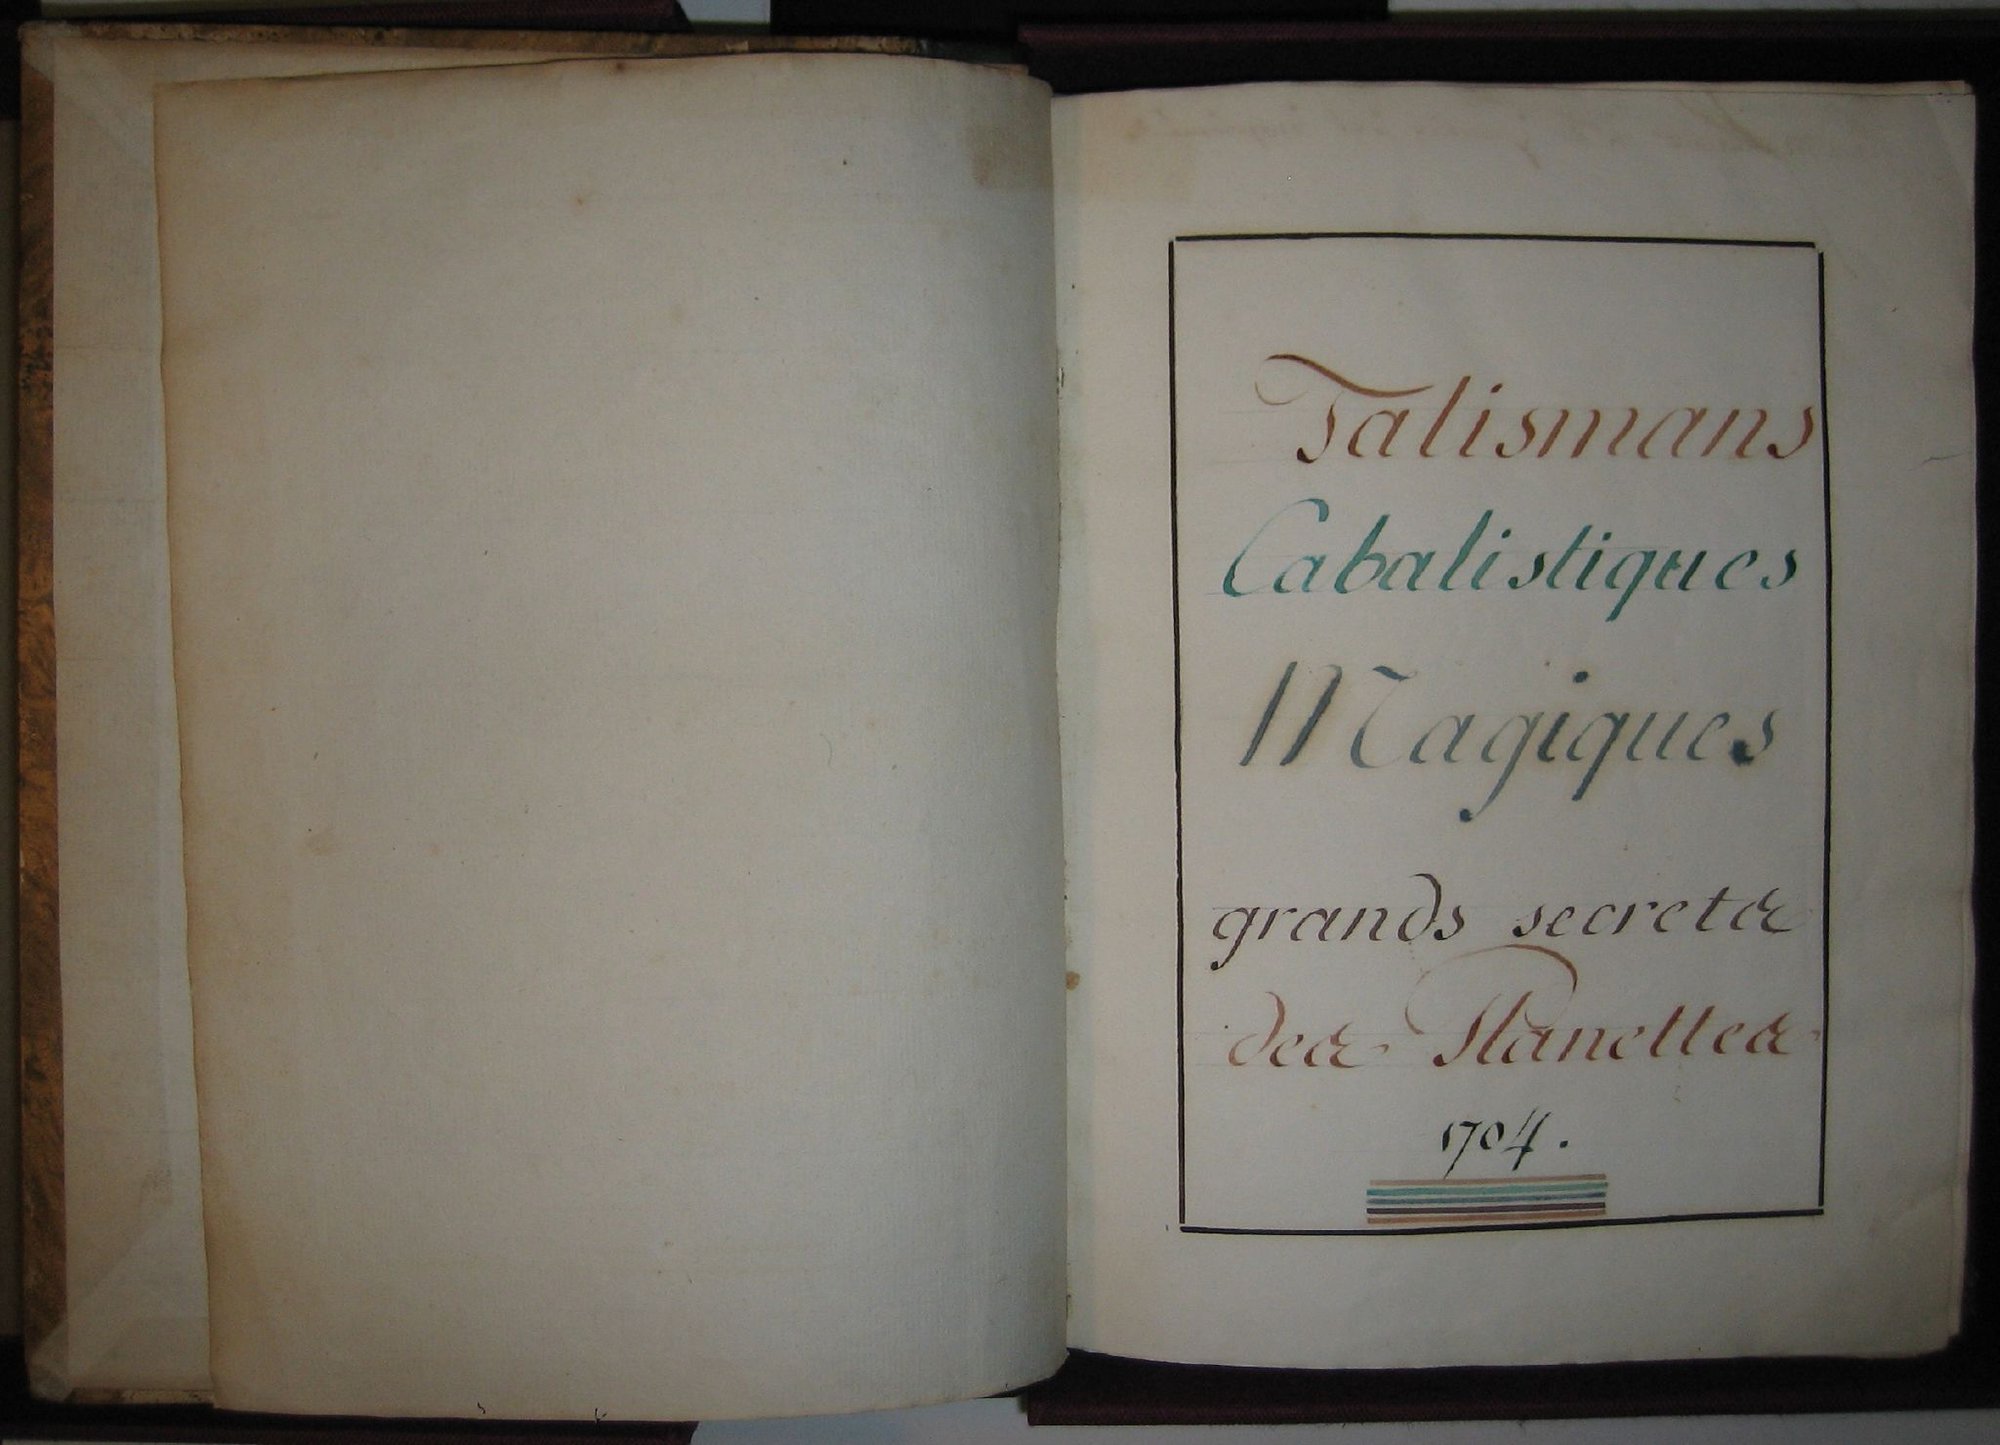 Talismans
Cabalistiques
Magiques
grands secrets
des Planettes
1704.